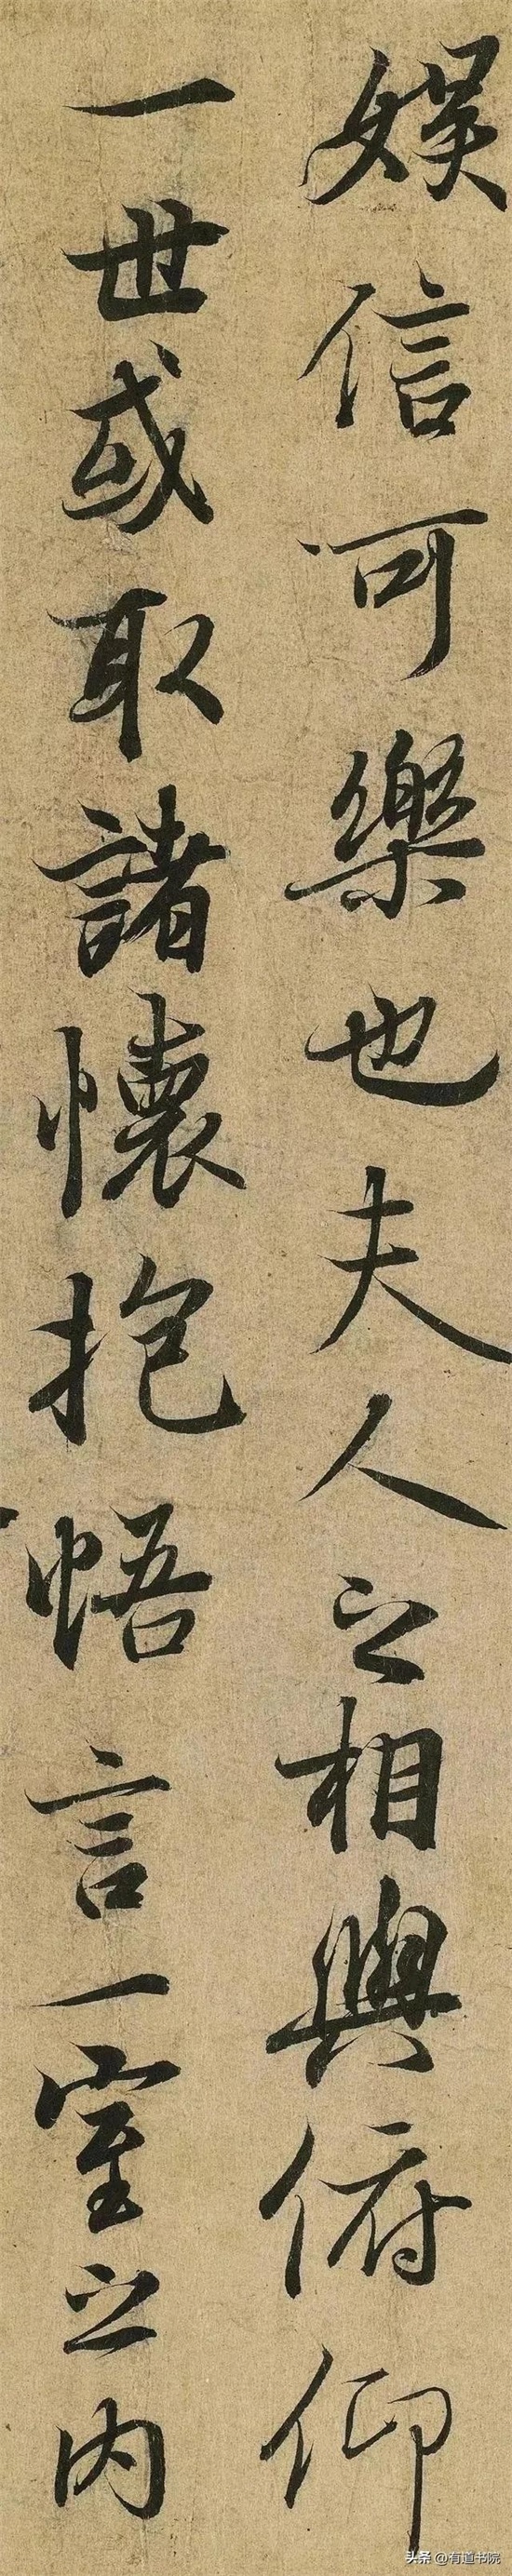 娛信可樂也夫人之相與俯仰
一世或取諸懷抱悟言一室之內
头条 @有道书院